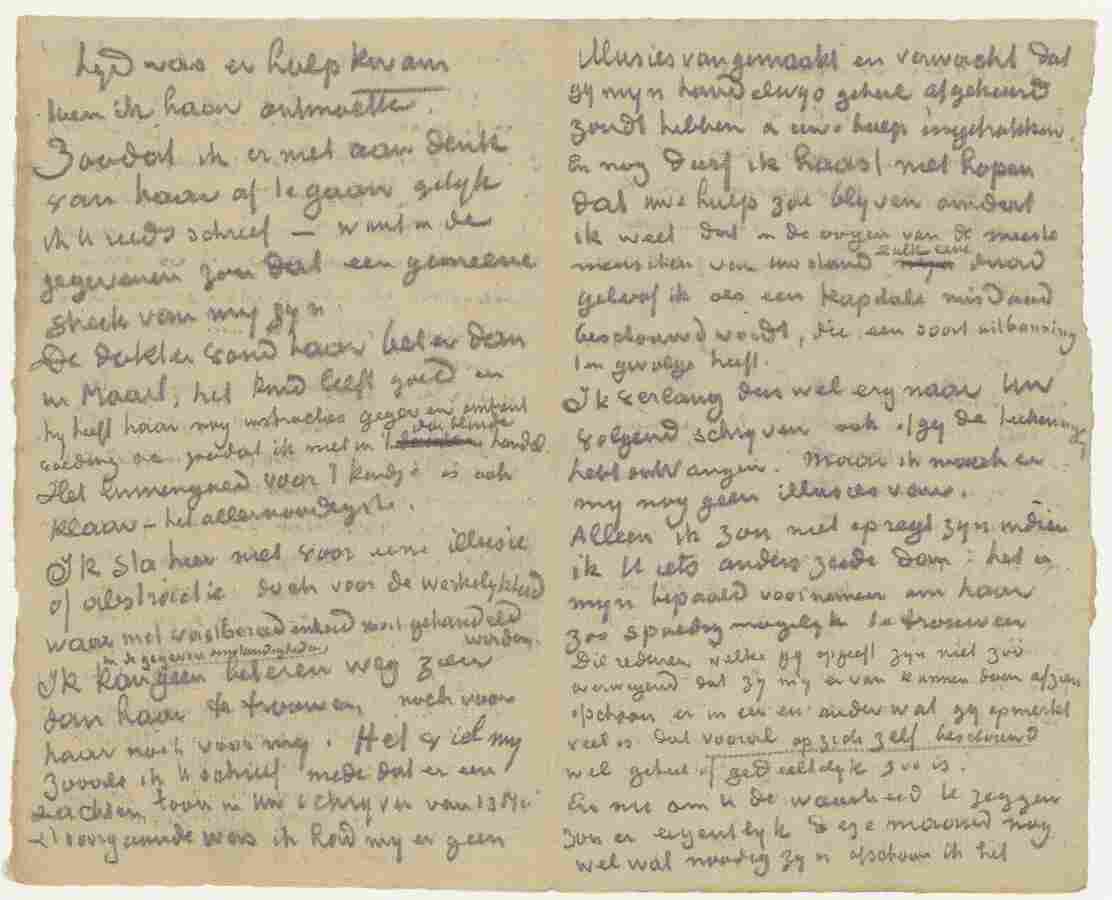 tyd was er hulp kwam
toen ik haar ontmoette.
Zoodat ik er niet aan denk
van haar af te gaan gelyk
ik U reeds schreef – want in de
gegevenen zou dat een gemeene
streek van my zyn.
De dokter vond haar beter dan
in Maart, het kind leeft goed en
hy heeft haar nog instructies gegeven omtrent
voeding &c. zoodat ik niet in 't blinde handel.
Het linnengoed voor 't kindje is ook
klaar – het allernoodigste.
Ik sta hier niet voor eene illusie
of abstractie doch voor de werkelykheid
waar met vastberadenheid moet gehandeld
worden.
in de gegeven omstandigheden
Ik kan geen beteren weg zien
dan haar te trouwen, noch voor
haar noch voor my. Het viel my
zooals ik U schreef mede dat er een
zachten toon in Uw schryven van 13 Mei
& voorgaande was ik had my er geen
Illusies van gemaakt en verwacht dat
gy myn handelwys geheel afgekeurd
zoudt hebben & uwe hulp ingetrokken.
En nog durf ik haast niet hopen
dat uwe hulp zou blyven omdat
ik weet dat in de oogen van de meeste
zulk eene
menschen van uw stand daad
geloof ik als een kapitale misdaad
beschouwd wordt, die een soort uitbanning
ten gevolge heeft.
Ik verlang dus wel erg naar Uw
volgend schryven ook of gy de teekeningen
hebt ontvangen. Maar ik maak er
my nog geen illusies van.
Alleen ik zou niet opregt zyn indien
ik U iets anders zeide dan: het is
myn bepaald voornemen om haar
zoo spoedig mogelyk te trouwen
Die redenen welke gy opgeeft zyn niet zoo
overwegend dat zy my er van kunnen doen afzien
ofschoon er in een en ander wat gy opmerkt
veel is dat vooral op zich zelf beschouwd
wel geheel of gedeeltelyk zoo is.
En nu om U de waarheid te zeggen
zou er eigentlyk deze maand nog
wel wat noodig zyn ofschoon ik het